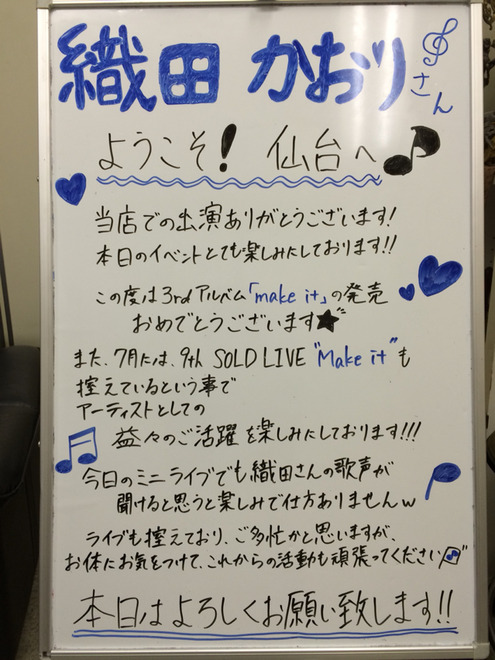 織田 かおり
さん
ようこそ! 仙台へ♪
当店での出演ありがとうございます!
本日のイベントとても楽しみにしております!!
この度は3rdアルバム「make it」の発売
おめでとうございます★
また、7月には、9th SOLD LIVE "Make it"も
控えているという事で
アーティストとしての
益々のご活躍を楽しみにしております!!!
今日のミニライブでも織田さんの歌声が
聞けると思うと楽しみで仕方ありませんw
ライブも控えており、ご多忙かと思いますが、
お体にお気をつけて、これからの活動も頑張ってください♪
本日はよろしくお願い致します!!